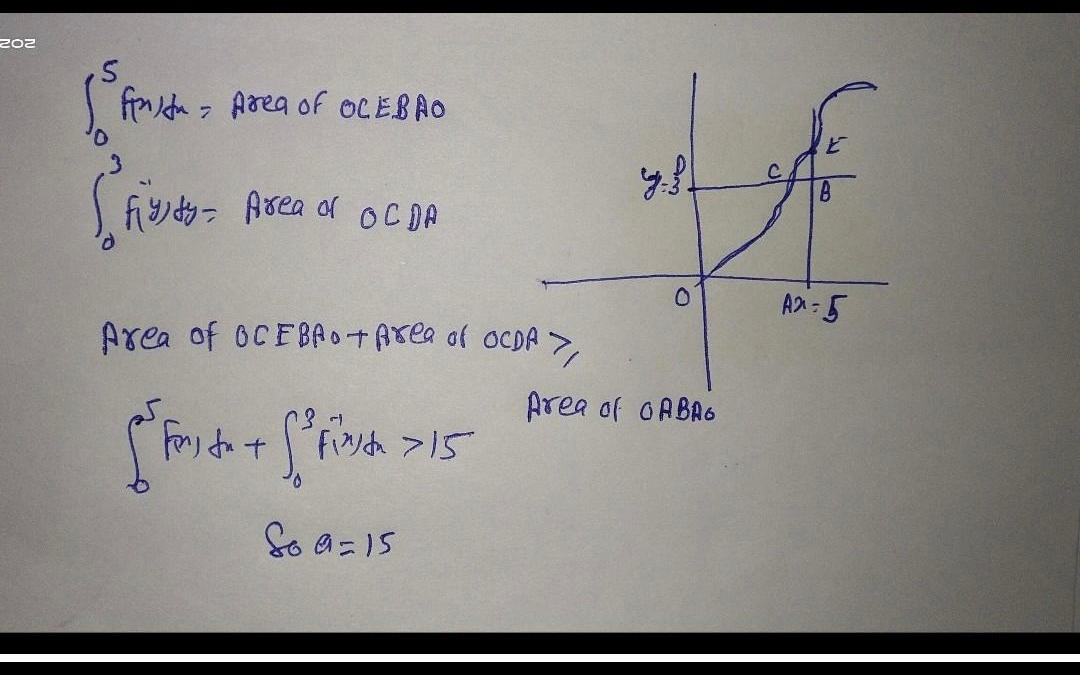 202
∫₀⁵ f(x)dx = Area of OCEBAO
∫₀³ f⁻¹(y)dy = Area of OCDA
Area of OCEBAO + Area of OCDA ≥,
Area of OABAO
∫₀⁵ f(x)dx + ∫₀³ f⁻¹(x)dx > 15
So a = 15
D
y=3
C
E
B
O
A x = 5